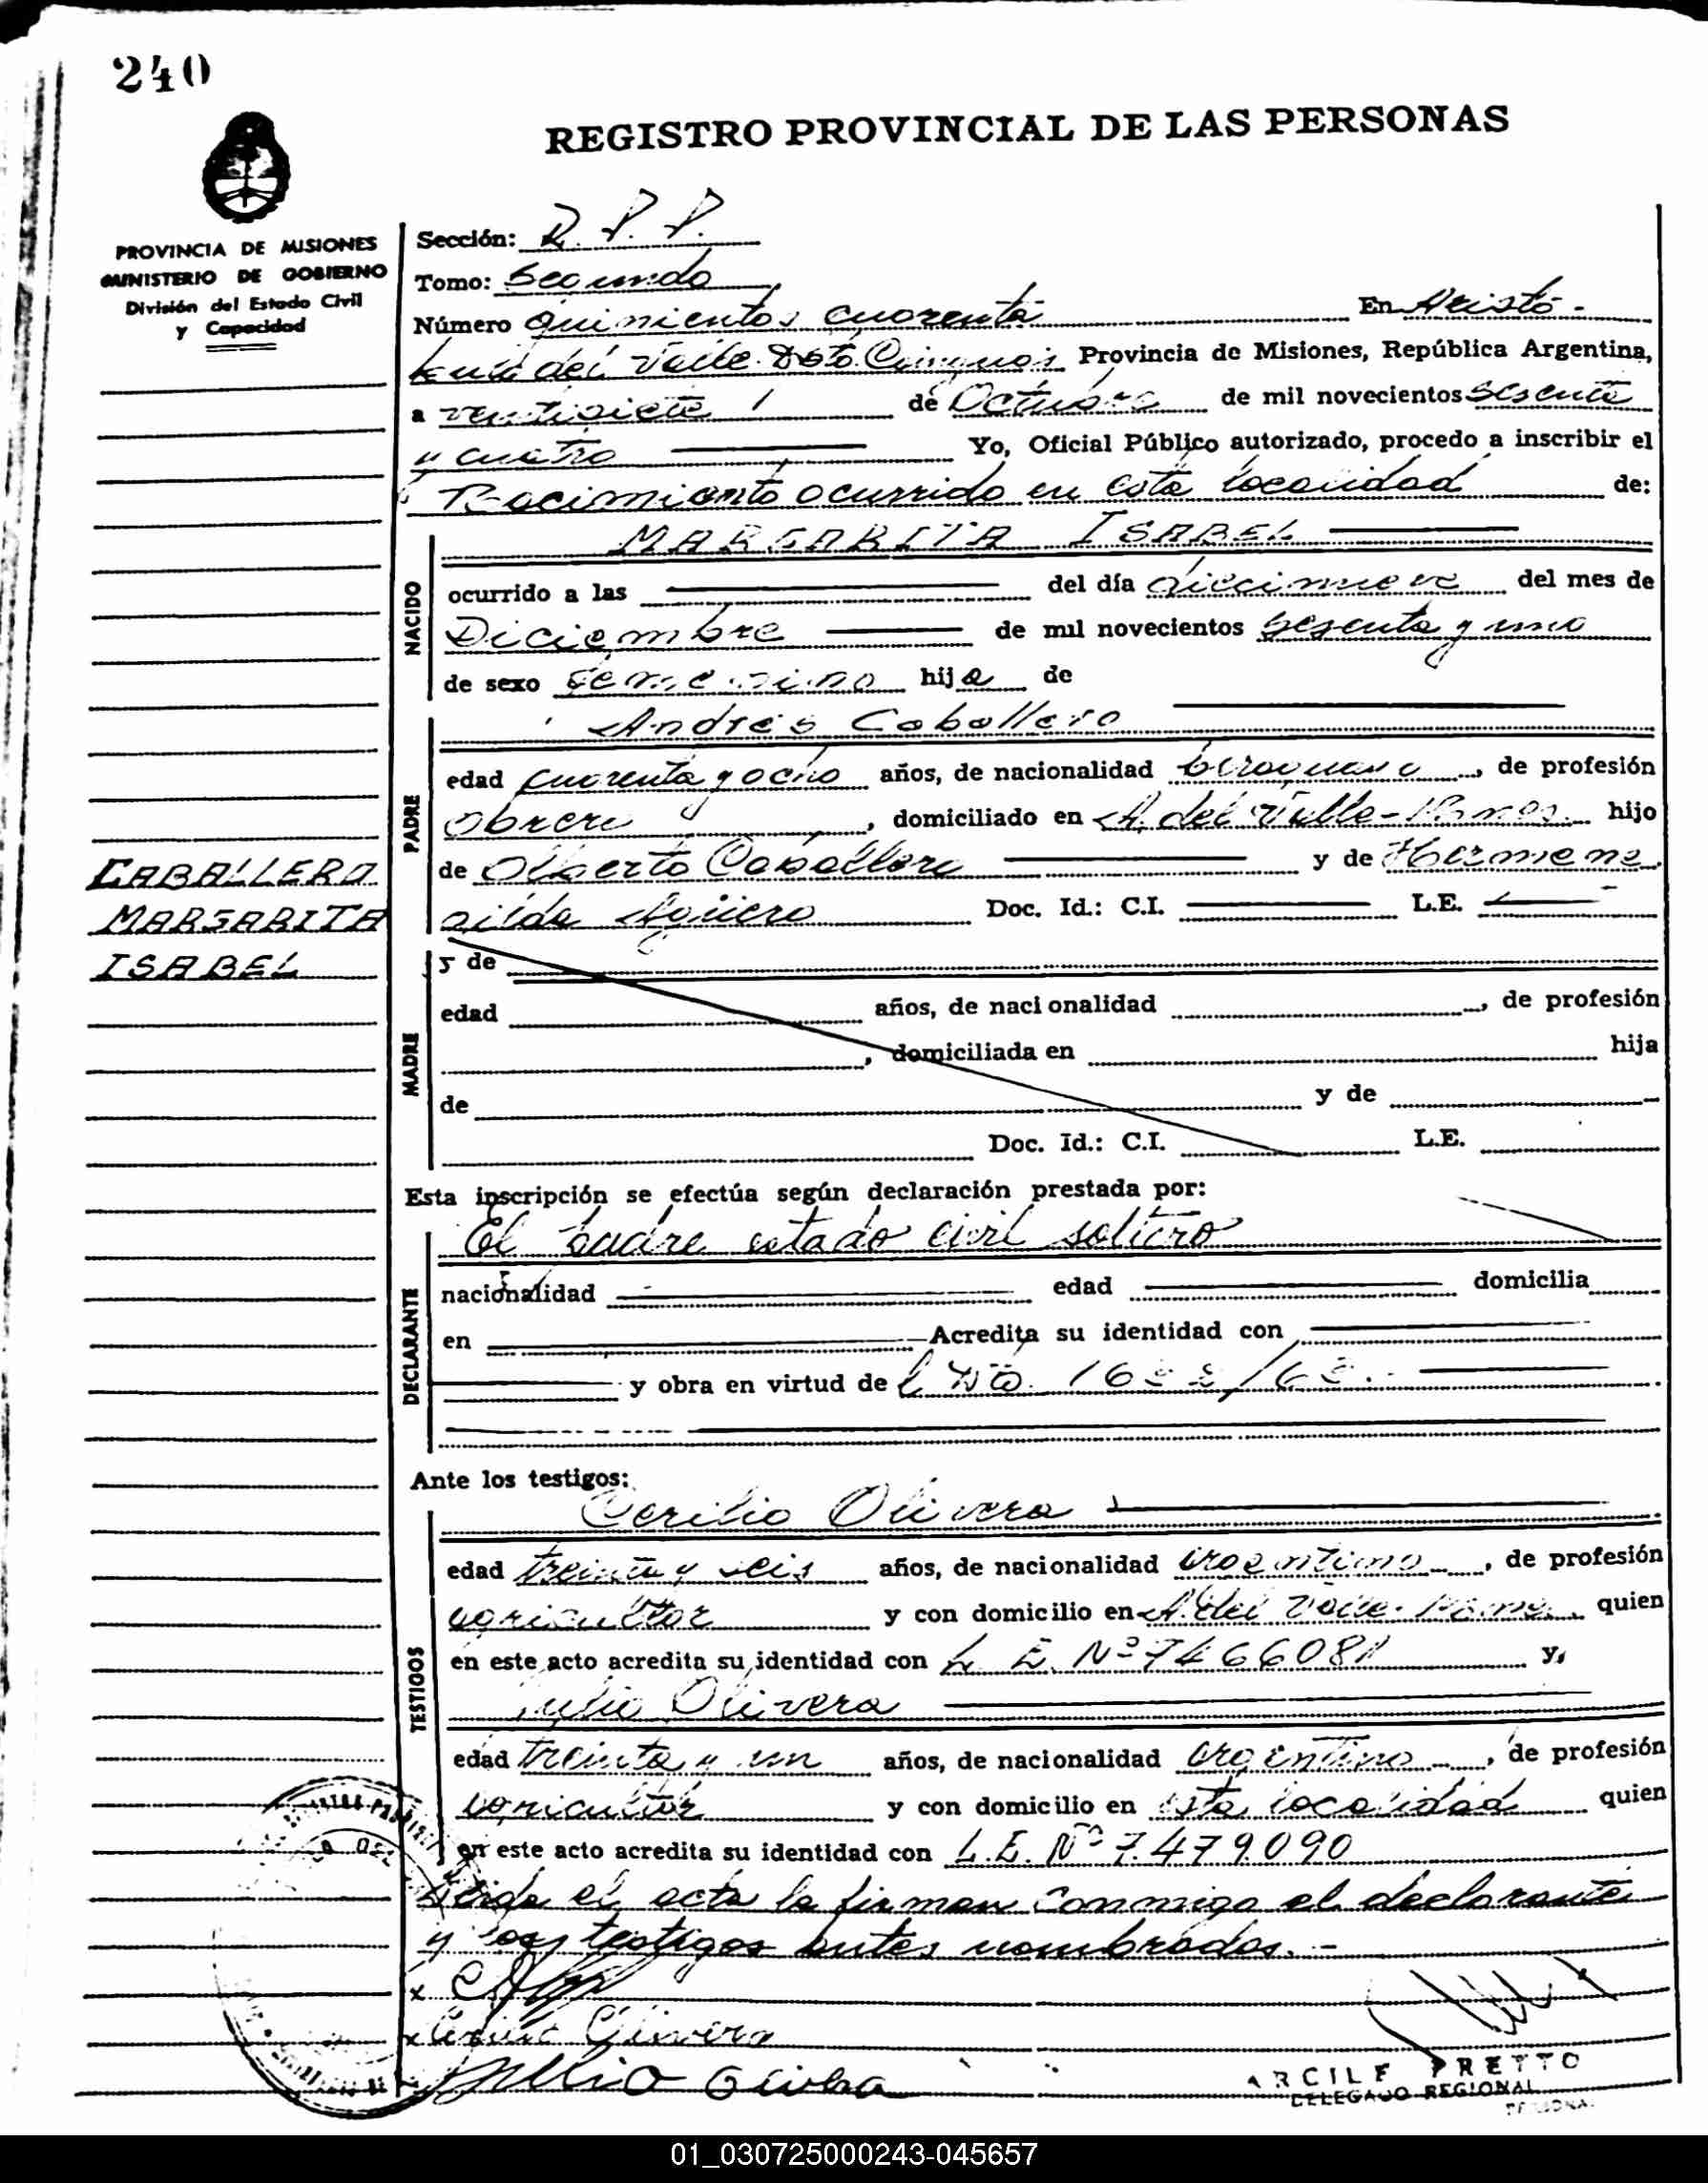 240
REGISTRO PROVINCIAL DE LAS PERSONAS
PROVINCIA DE MISIONES
MINISTERIO DE GOBIERNO
División del Estado Civil
y Capacidad
Sección: R. P. P.
Tomo: Segundo
Número quinientos cuarenta En Aristó-
bulo del Valle Dpto Cainguás Provincia de Misiones, República Argentina,
a ventisiete de Octubre de mil novecientos sesenta
y cuatro Yo, Oficial Público autorizado, procedo a inscribir el
Nacimiento ocurrido en esta localidad de:
MARGARITA ISABEL
NACIDO
ocurrido a las del día diecinueve del mes de
Diciembre de mil novecientos sesenta y uno
de sexo femenino hija de
Andrés Caballero
PADRE
edad cuarenta y ocho años, de nacionalidad , de profesión
obrero , domiciliado en A. del Valle - hijo
de Alberto Caballero y de Hermene
gilda Agüero Doc. Id.: C.I. L.E.
CABALLERO
MARGARITA
ISABEL
MADRE
y de
edad años, de nacionalidad , de profesión
, domiciliada en hija
de y de
Doc. Id.: C.I. L.E.
Esta inscripción se efectúa según declaración prestada por:
DECLARANTE
El padre estado civil soltero
nacionalidad edad domicilia
en Acredita su identidad con
y obra en virtud de
Ante los testigos:
TESTIGOS
Cerilio Olivera
edad treinta y seis años, de nacionalidad argentino , de profesión
agricultor y con domicilio en A. del Valle - quien
en este acto acredita su identidad con L. E. Nº 7466081 y,
Julio Olivera
edad treinta y un años, de nacionalidad argentino , de profesión
agricultor y con domicilio en esta localidad quien
en este acto acredita su identidad con L.E. Nº 7.479.090
Leida el acta la firman conmigo el declarante
y los testigos antes nombrados.-
Olivera
Julio
ARCILE PRETTO
DELEGADO REGIONAL
01_030725000243-045657